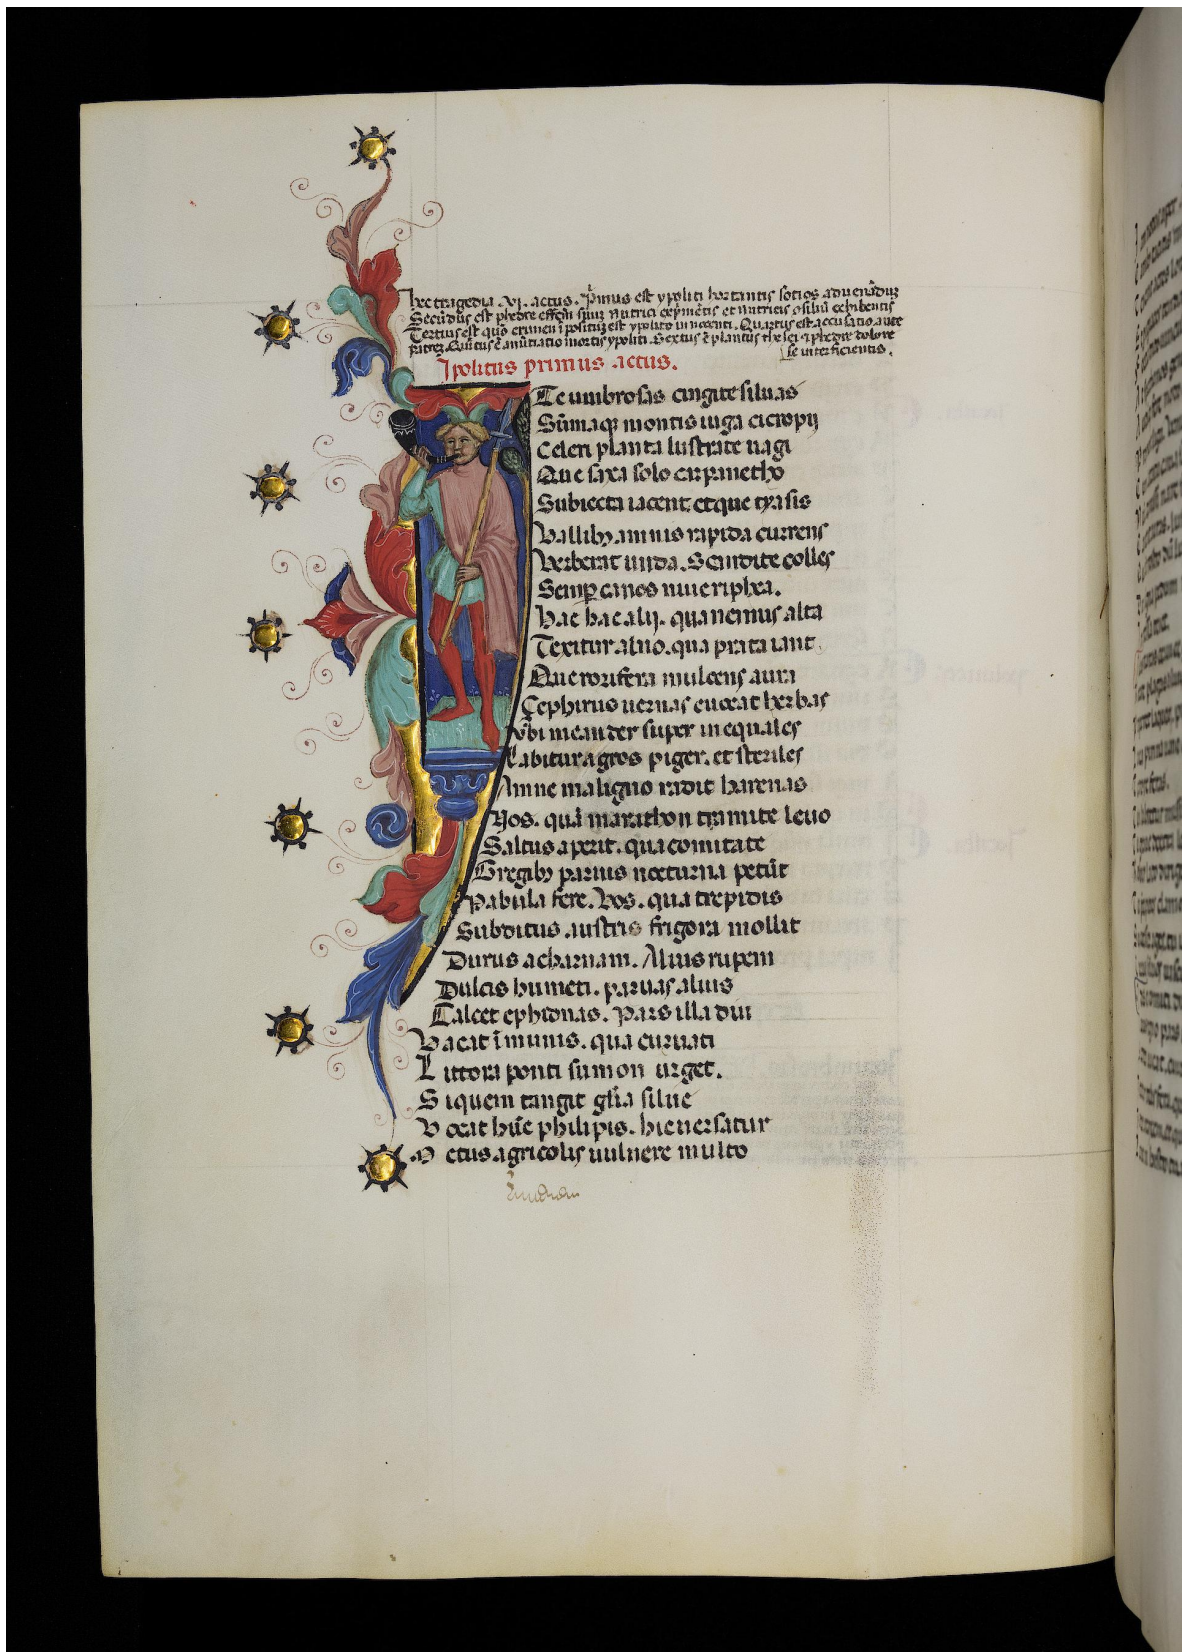 hec tragedia .vj. actus. Primus est ypoliti hortantis socios ad venādūz
Secūdus est phedre
Tertius est quō crimen īpositūz est ypolito innocenti. Quartus est accusatio ante
patrez. Quītus ē anūtiatio mortis ypoliti. Sextus ē plantus thesei ⁊ phedre dolore
se interficientis.
Ipolitus primus actus.
Te umbrosas cingite siluas
Sūmaqꝫ montis iuga cicropij
Celeri planta lustrate uagi
Que saxa solo carpmetho
Subiecta iacent et que tyasis
Vallibꝫ amnis rapida currens
Verberat unda. Scandite colles
Semꝑ canos niue riphea.
Hac hac alij. qua nemus alta
Texitur alno. qua prata iacent
Que rorifera mulcens aura
Cephirus uernas euocat herbas
Vbi meander super inequales
Labitur agros piger. et steriles
Amne maligno radit harenas
Vos. qua marathon tramite leuo
Saltus aperit. qua comitate
Gregibꝫ paruis nocturna petūt
Pabula fere. Vos. qua trepidis
Subditus austris frigora mollit
Durus acharnam. Alius rupem
Dulcis humeti. paruas alius
Calcet ephidnas. Pars illa diu
Vacat īmunis. qua curuati
Littora ponti sumon urget.
Siquem tangit glīa silue
Vocat hūc philipis. hic uersatur
Metus agricolis uulnere multo